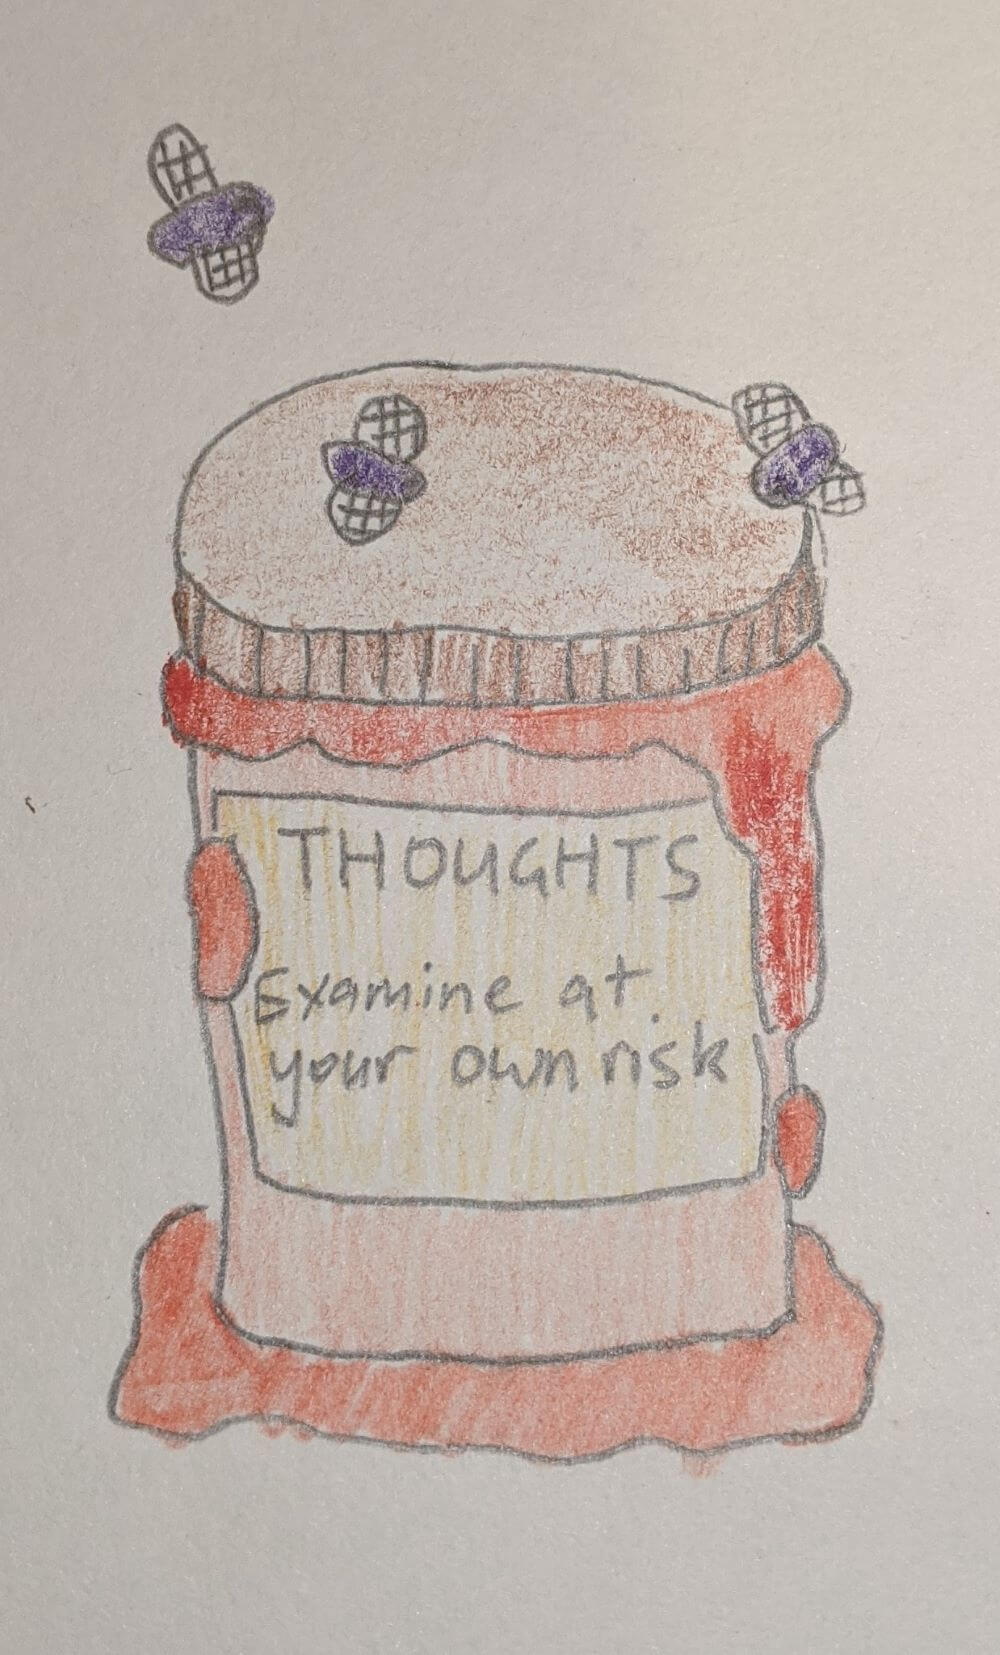 THOUGHTS
Examine at
your own risk